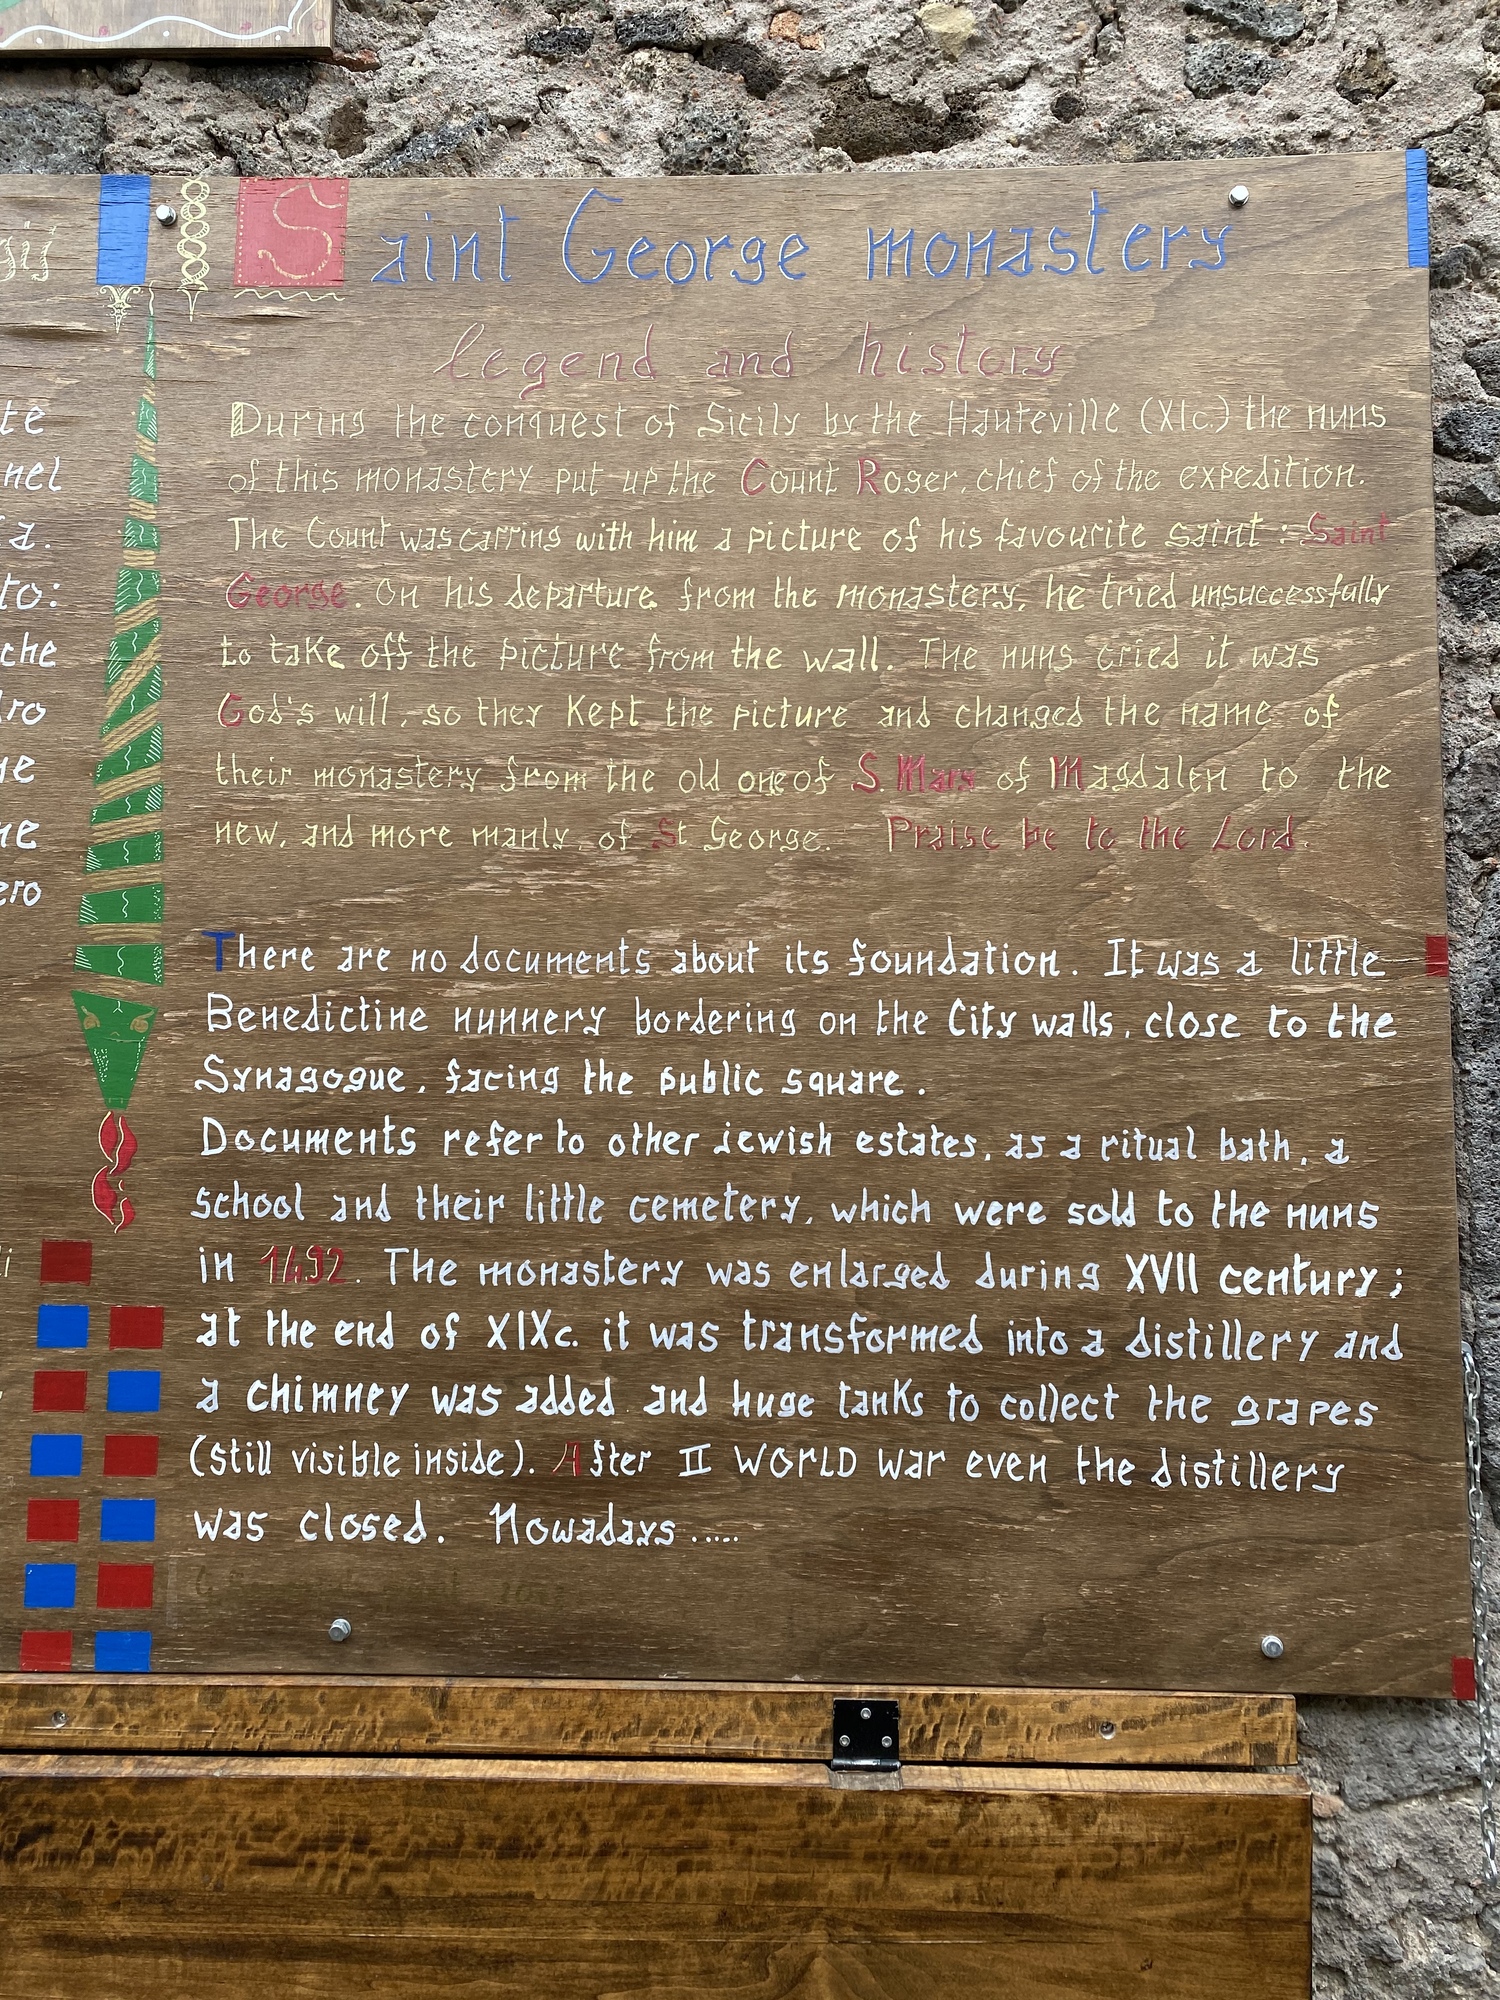 gij
te
nel
a.
to:
che
dro
ne
ne
ero
Saint George monastery
legend and history
During the conquest of Sicily by the Hauteville (XIc.) the nuns
of this monastery put up the Count Roger, chief of the expedition.
The Count was carring with him a picture of his favourite saint : Saint
George. On his departure from the monastery, he tried unsuccessfully
to take off the picture from the wall. The nuns cried it was
God's will, so they kept the picture and changed the name of
their monastery from the old one of S. Mary of Magdalen to the
new, and more manly, of St George. Praise be to the Lord.
There are no documents about its foundation. It was a little
Benedictine nunnery bordering on the City walls, close to the
Synagogue, facing the public square.
Documents refer to other jewish estates, as a ritual bath, a
school and their little cemetery, which were sold to the nuns
in 1492. The monastery was enlarged during XVII century;
at the end of XIXc. it was transformed into a distillery and
a chimney was added and huge tanks to collect the grapes
(still visible inside). After II WORLD War even the distillery
was closed. Nowadays .....